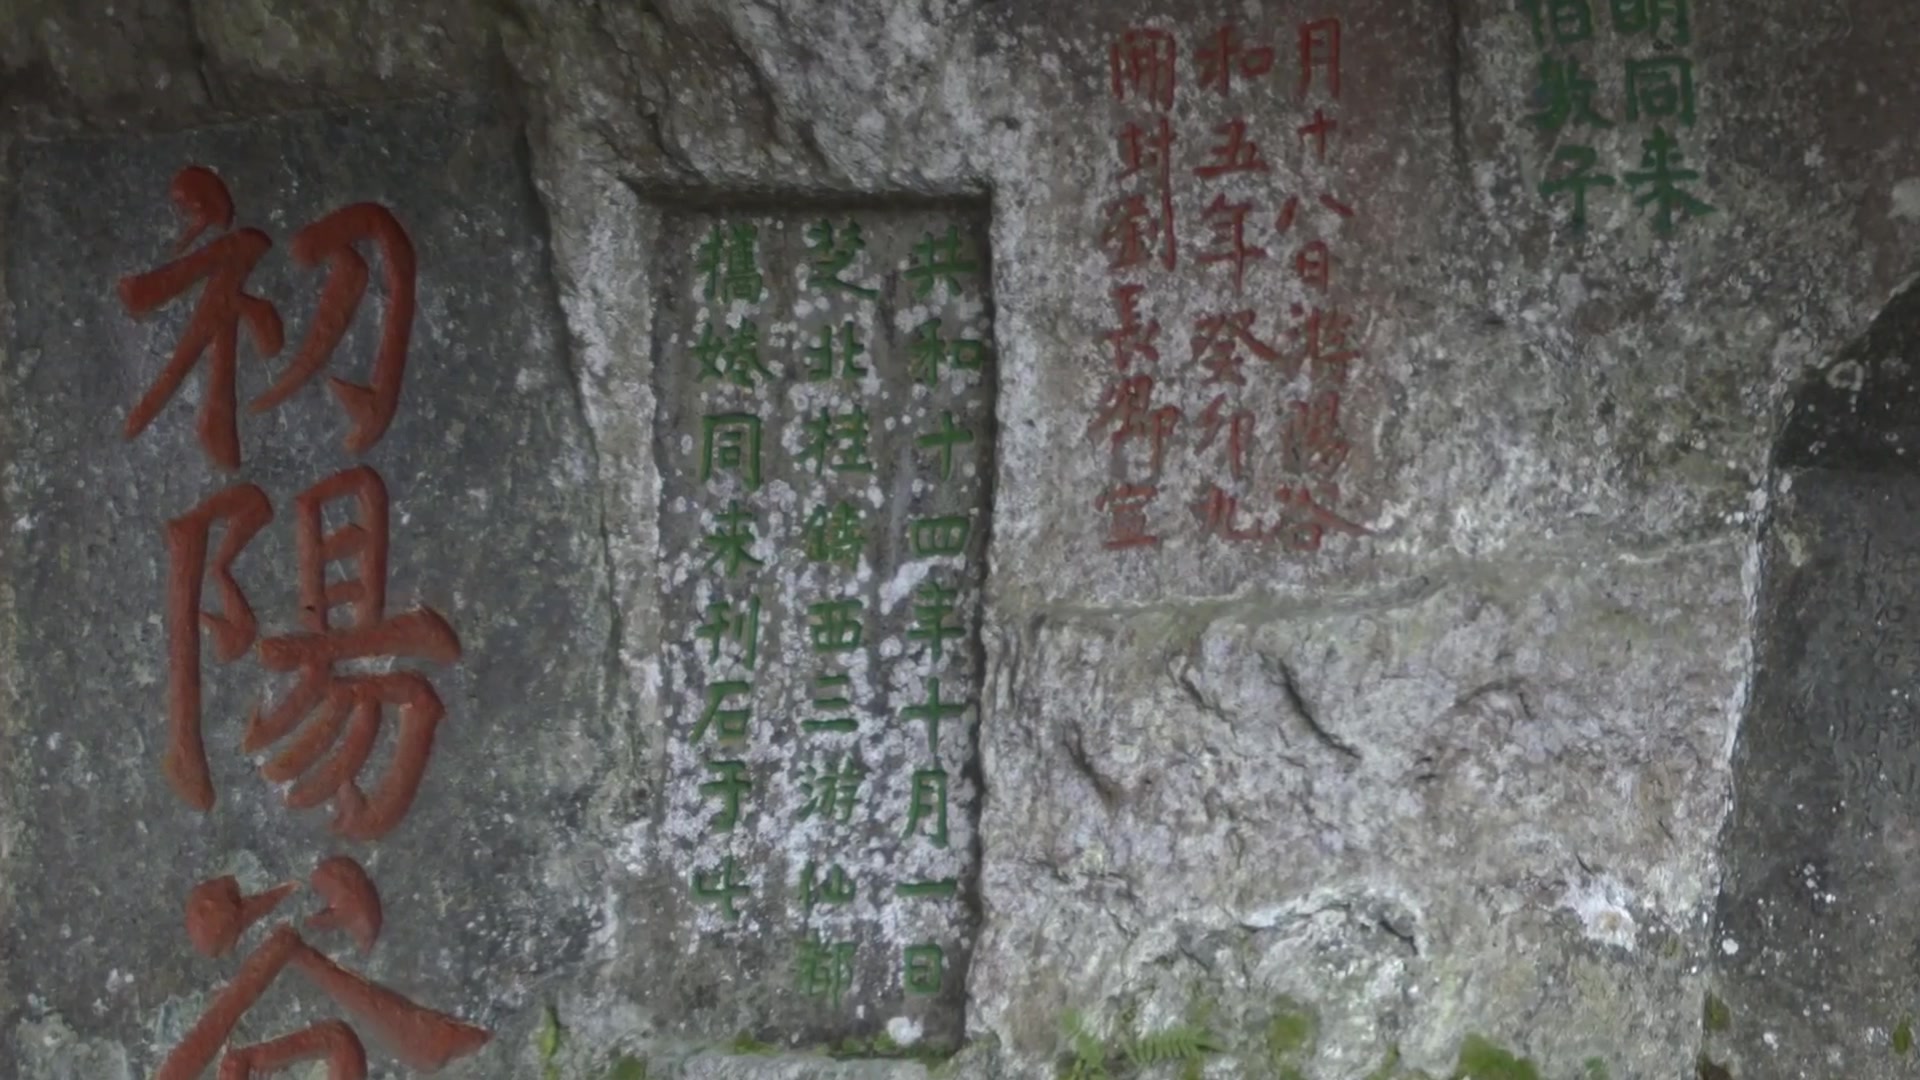 初陽谷
共和十四年十月一日
芝北桂西三游仙都
攜婘同来刊石于此
開封劉長卿宣
和五年癸卯九
月十八日游陽谷
伯敦子
明同来